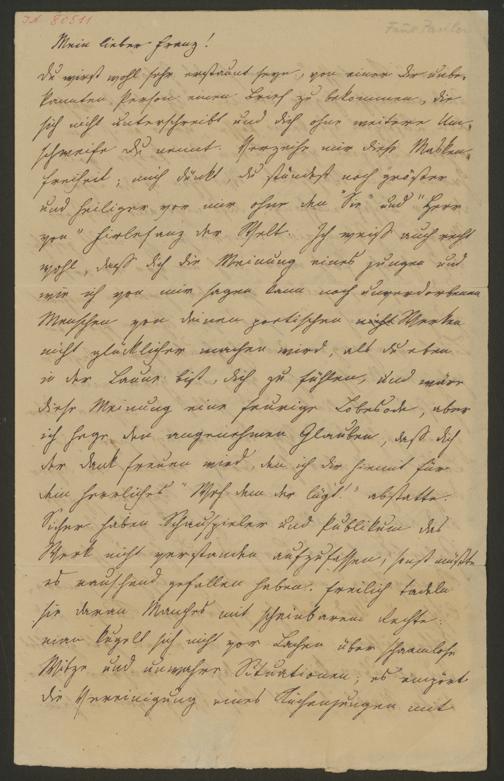 I.N. 80511
Mein lieber Franz!
Du wirst wohl sehr erstaunt seyn, von einer dir unbe-
kannten Person einen Brief zu bekommen, die
sich nicht unterschreibt und dich ohne weitere Um-
schweife du nennt. Verzeihe mir diese Masken-
freiheit; mich dünkt, du stündest noch größer
und heiliger vor mir ohne den "Sie" und "Herr
von" Firlefanz der Welt. Ich weiß auch recht
wohl, daß dich die Meinung eines jungen und
wie ich von mir sagen kann noch unverdorbenen
Menschen von deinen poetischen Werken
nicht glücklicher machen wird, als du eben
in der Laune bist, dich zu fühlen, und wäre
diese Meinung eine feurige Lobesode, aber
ich hege den angenehmen Glauben, daß dich
der Dank freuen wird, den ich dir hiemit für
dein herrliches "Weh dem der lügt!" abstatte.
Sicher haben Schauspieler und Publikum das
Werk nicht verstanden aufzufassen, sonst müßte
es rauschend gefallen haben. Freilich tadeln
sie daran Manches mit scheinbarem Rechte:
man kugelt sich nicht vor Lachen über schaamlose
Witze und unwahre Situationen; es empört
die Vereinigung eines Küchenjungen mit